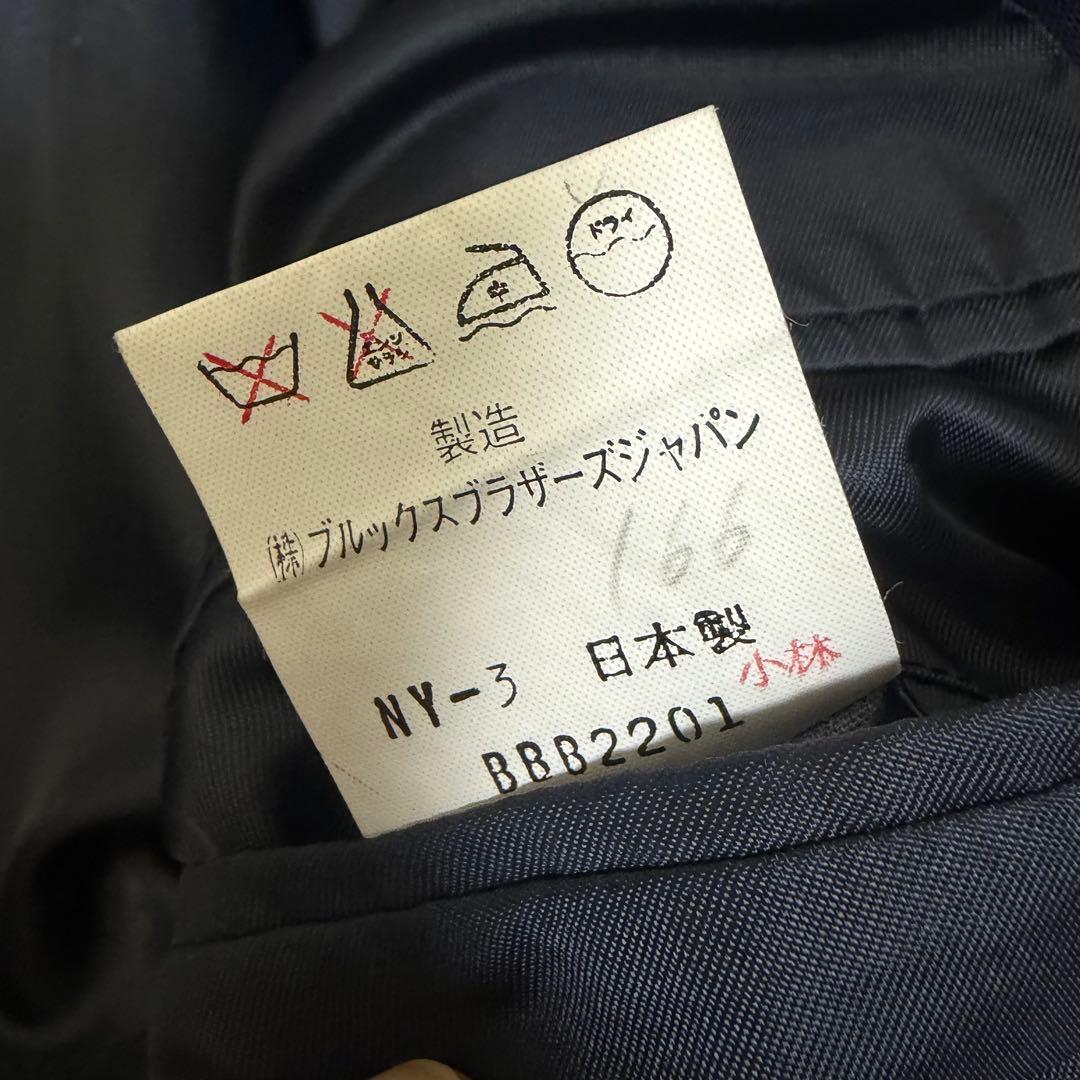 ドライ
中
エンソ
サラシ
製造
(株)ブルックスブラザーズジャパン
166
NY-3 日本製
小林
BBB2201